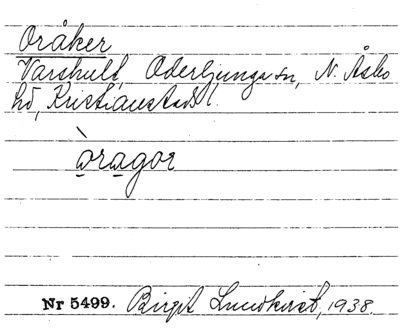 Oråker
Varshult, Oderljunga sn, N. Åsbo
hd, Kristianstads l.
òragor
Nr 5499. Birgit Lundkvist, 1938.